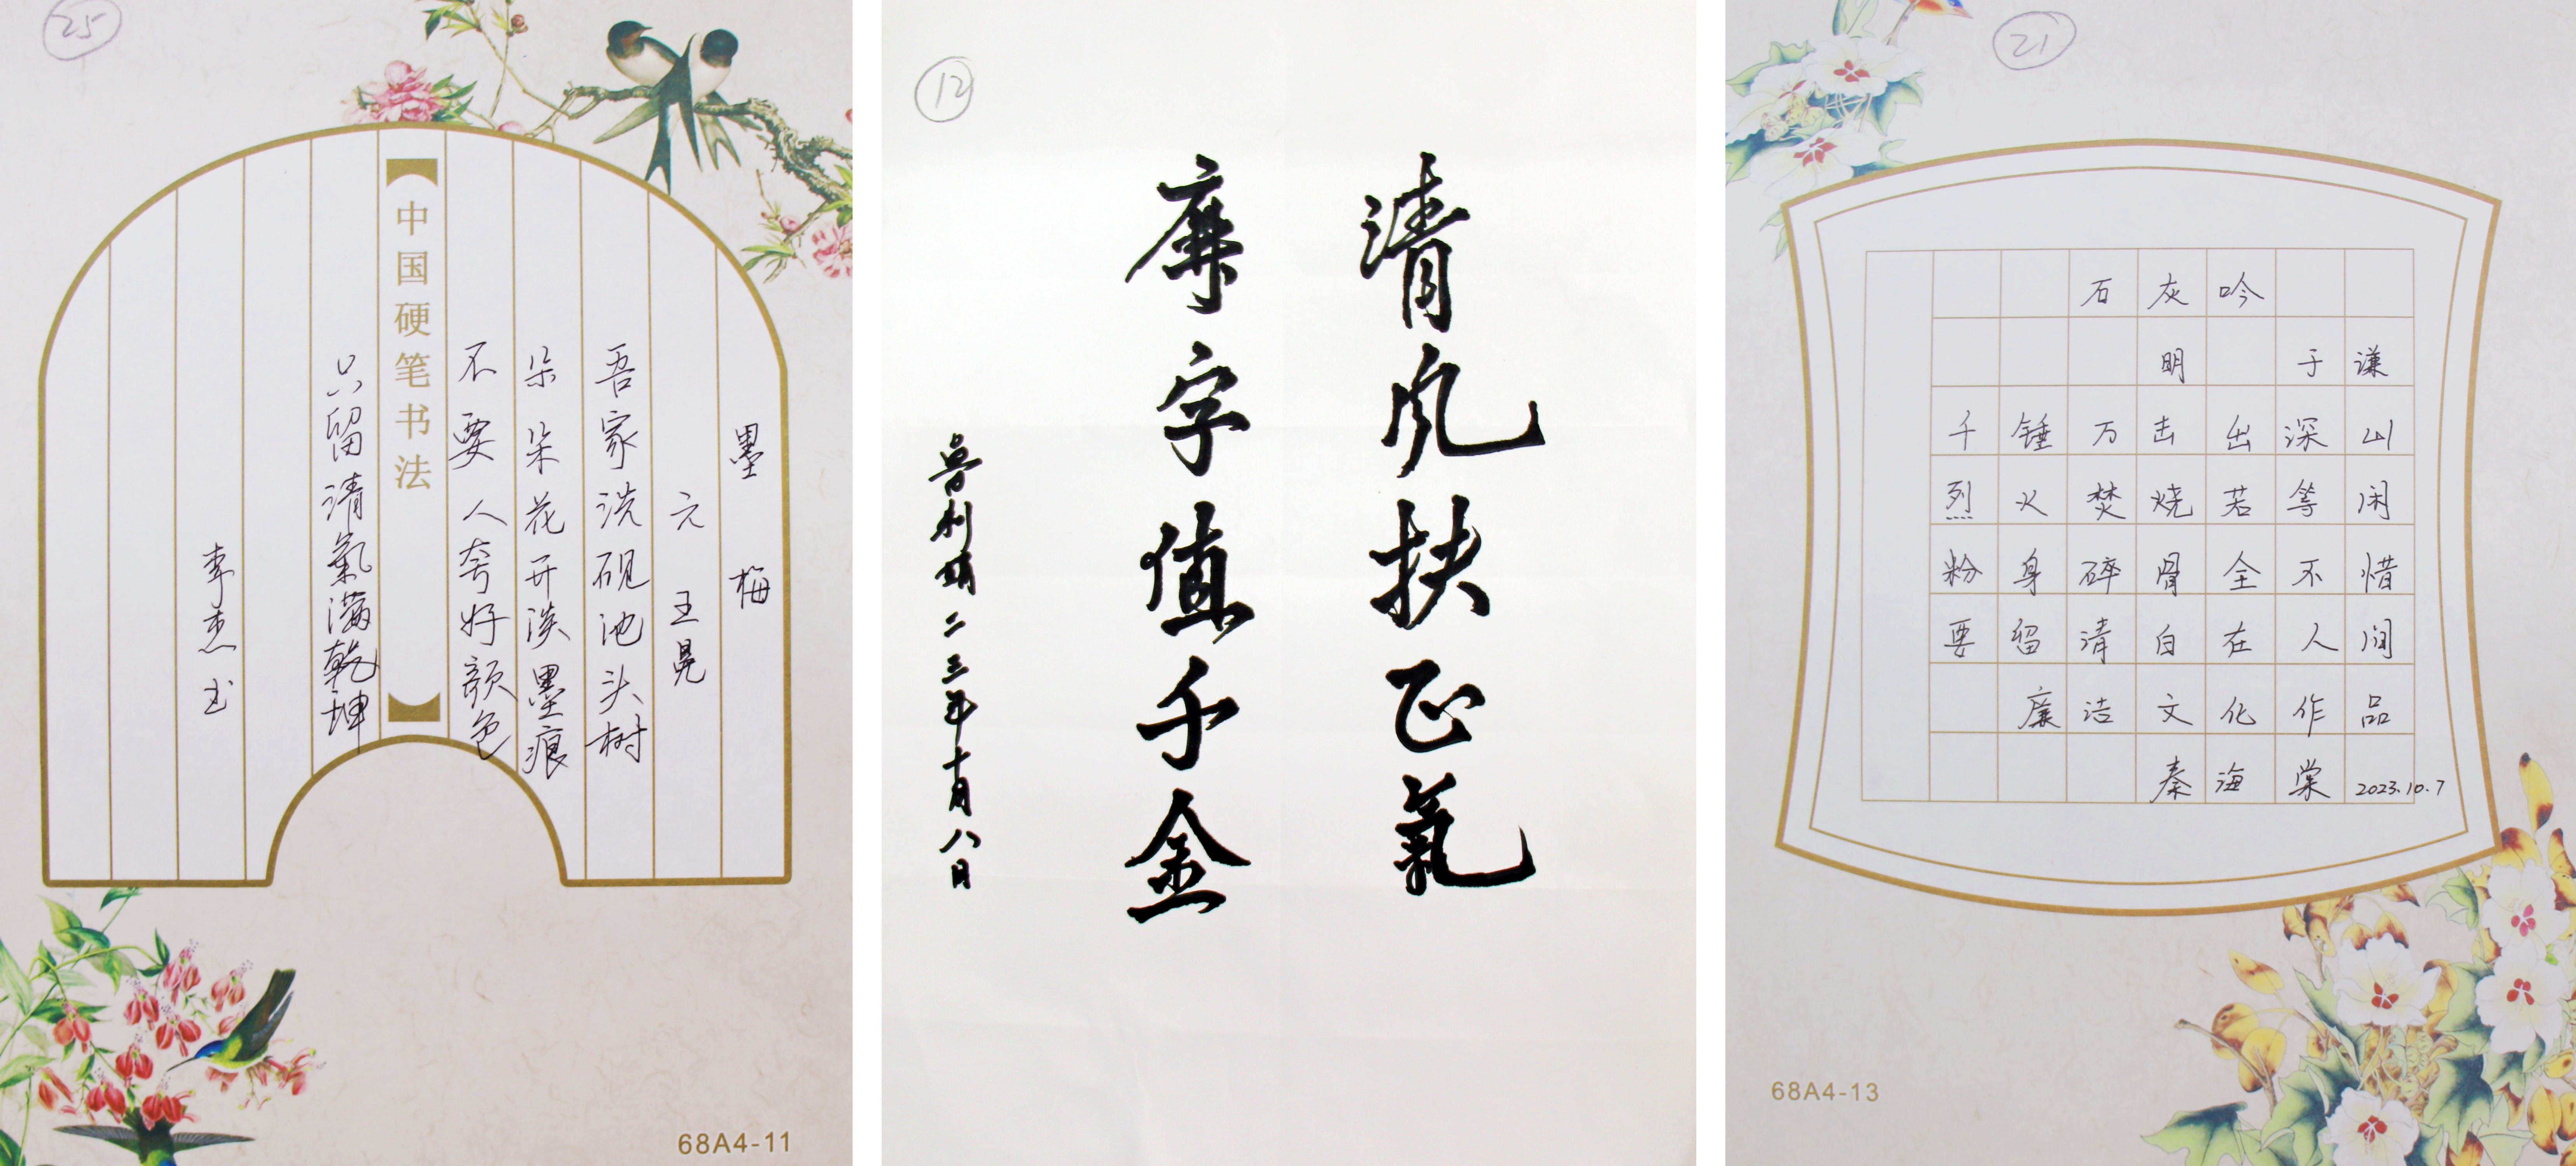 25
墨梅
元 王冕
吾家洗砚池头树
朵朵花开淡墨痕
不要人夸好颜色
中国硬笔书法
只留清氣满乾坤
李杰书
68A4-11
12
清风扶正氣
廉字值千金
鲁利 二三年十月八日
21
石灰吟
明 于谦
千锤万击出深山
烈火焚烧若等闲
粉身碎骨全不惜
要留清白在人间
廉洁文化作品
秦海棠 2023.10.7
68A4-13